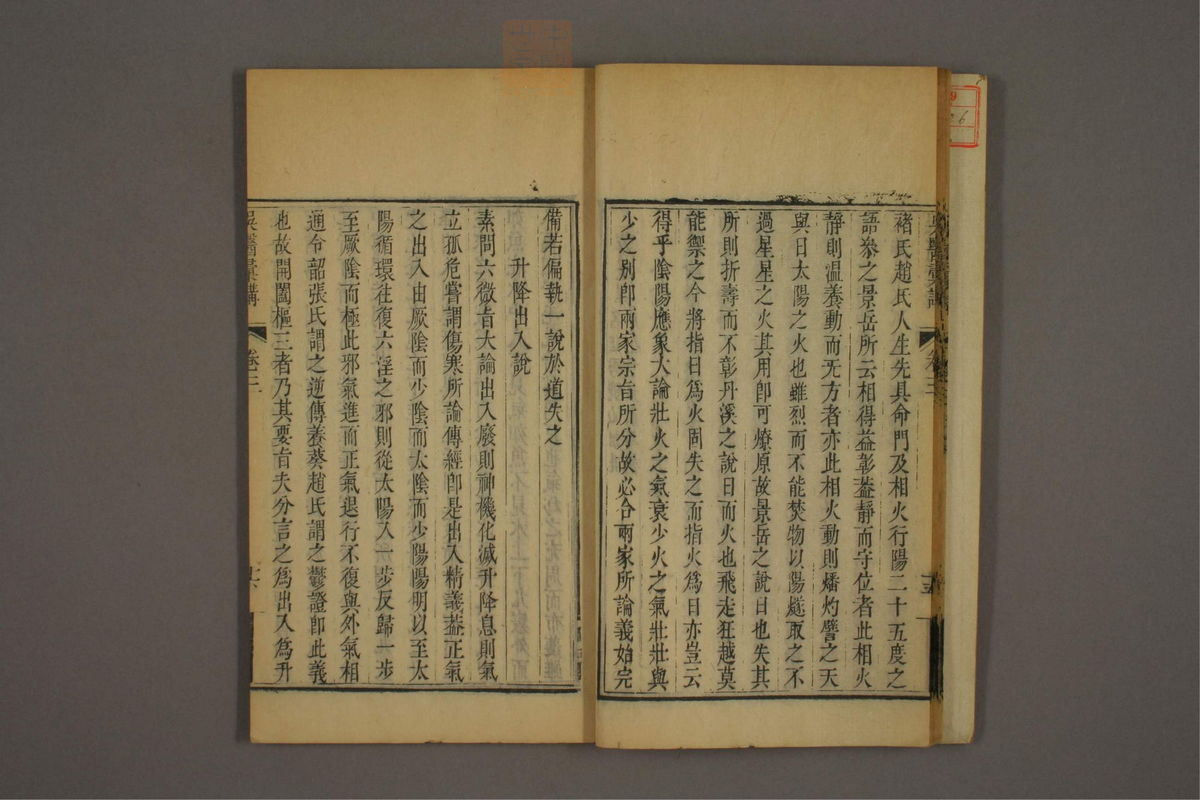 褚氏趙氏人生先具命門及相火行陽二十五度之
語叅之景岳所云相得益彰葢靜而守位者此相火
靜則温養動而无方者亦此相火動則燔灼譬之天
與日太陽之火也雖烈而不能焚物以陽燧取之不
過星星之火其用卽可燎原故景岳之說日也失其
所則折壽而不彰丹溪之說日而火也飛走狂越莫
能禦之今將指日爲火固失之而指火爲日亦豈云
得乎陰陽應象大論壯火之氣衰少火之氣壯壯與
少之别卽兩家宗旨所分故必合兩家所論義始完
備若偏執一說於道失之
升降出入說
素問六微旨大論出入廢則神機化滅升降息則氣
立孤危嘗謂傷寒所論傳經卽是出入精義葢正氣
之出入由厥陰而少陰而太陰而少陽陽明以至太
陽循環往復六淫之邪則從太陽入一步反歸一步
至厥陰而極此邪氣進而正氣退行不復與外氣相
通今韶張氏謂之逆傳養葵趙氏謂之鬱證卽此義
也故開闔樞三者乃其要旨夫分言之爲出入爲升
吳醫彚講 卷三